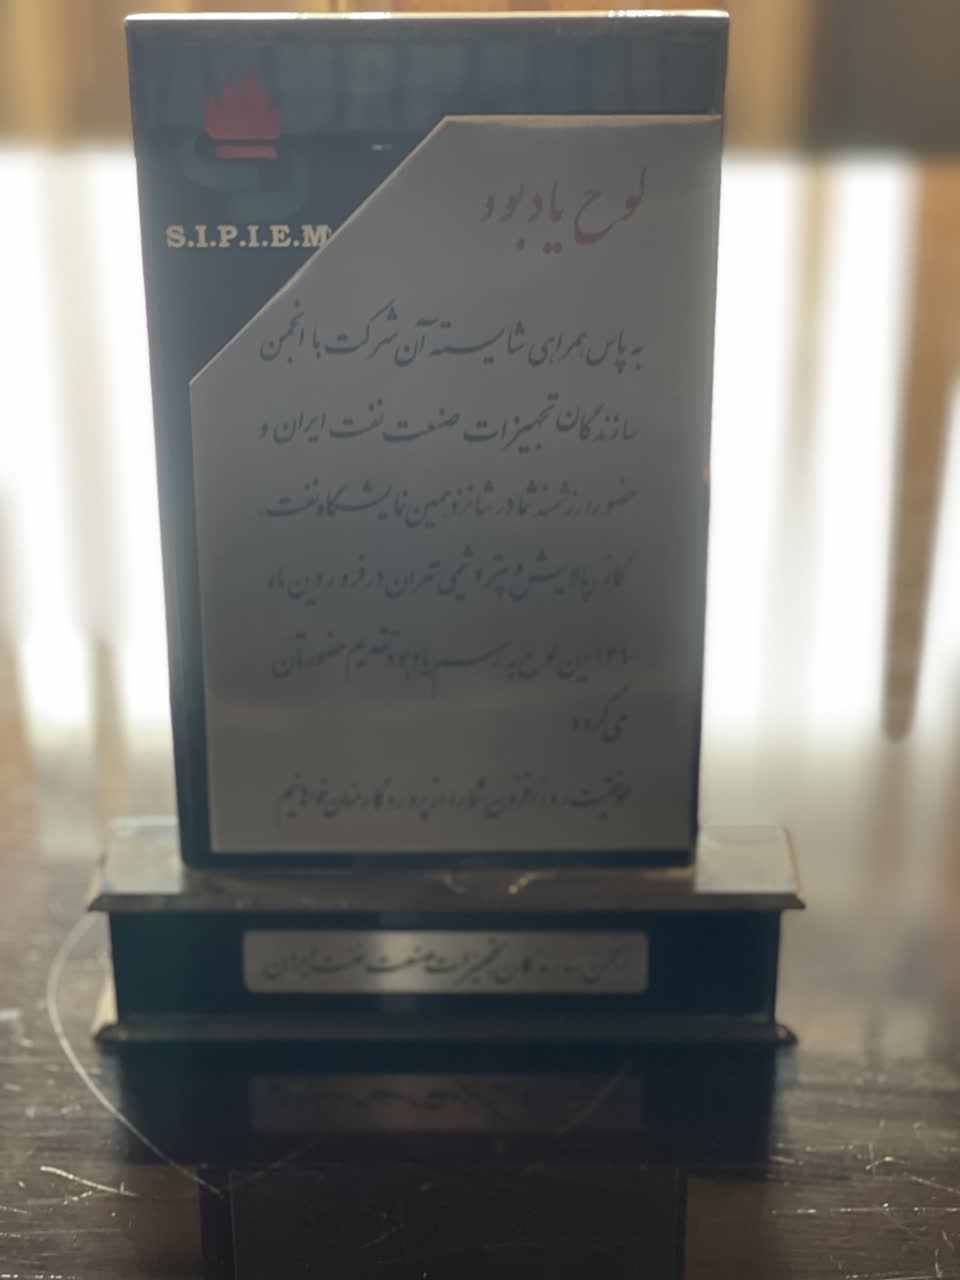 S.I.P.I.E.M
لوح یادبود
به پاس همراهی شایسته آن شرکت با انجمن
سازندگان تجهیزات صنعت نفت ایران و
حضور ارزشمند شما در شانزدهمین نمایشگاه نفت،
گاز، پالایش و پتروشیمی تهران در فروردین ماه
این لوح به رسم یادبود تقدیم حضورتان
می گردد
موفقیت روز افزون شما را از پروردگار منان خواهانیم
انجمن سازندگان تجهیزات صنعت نفت ایران